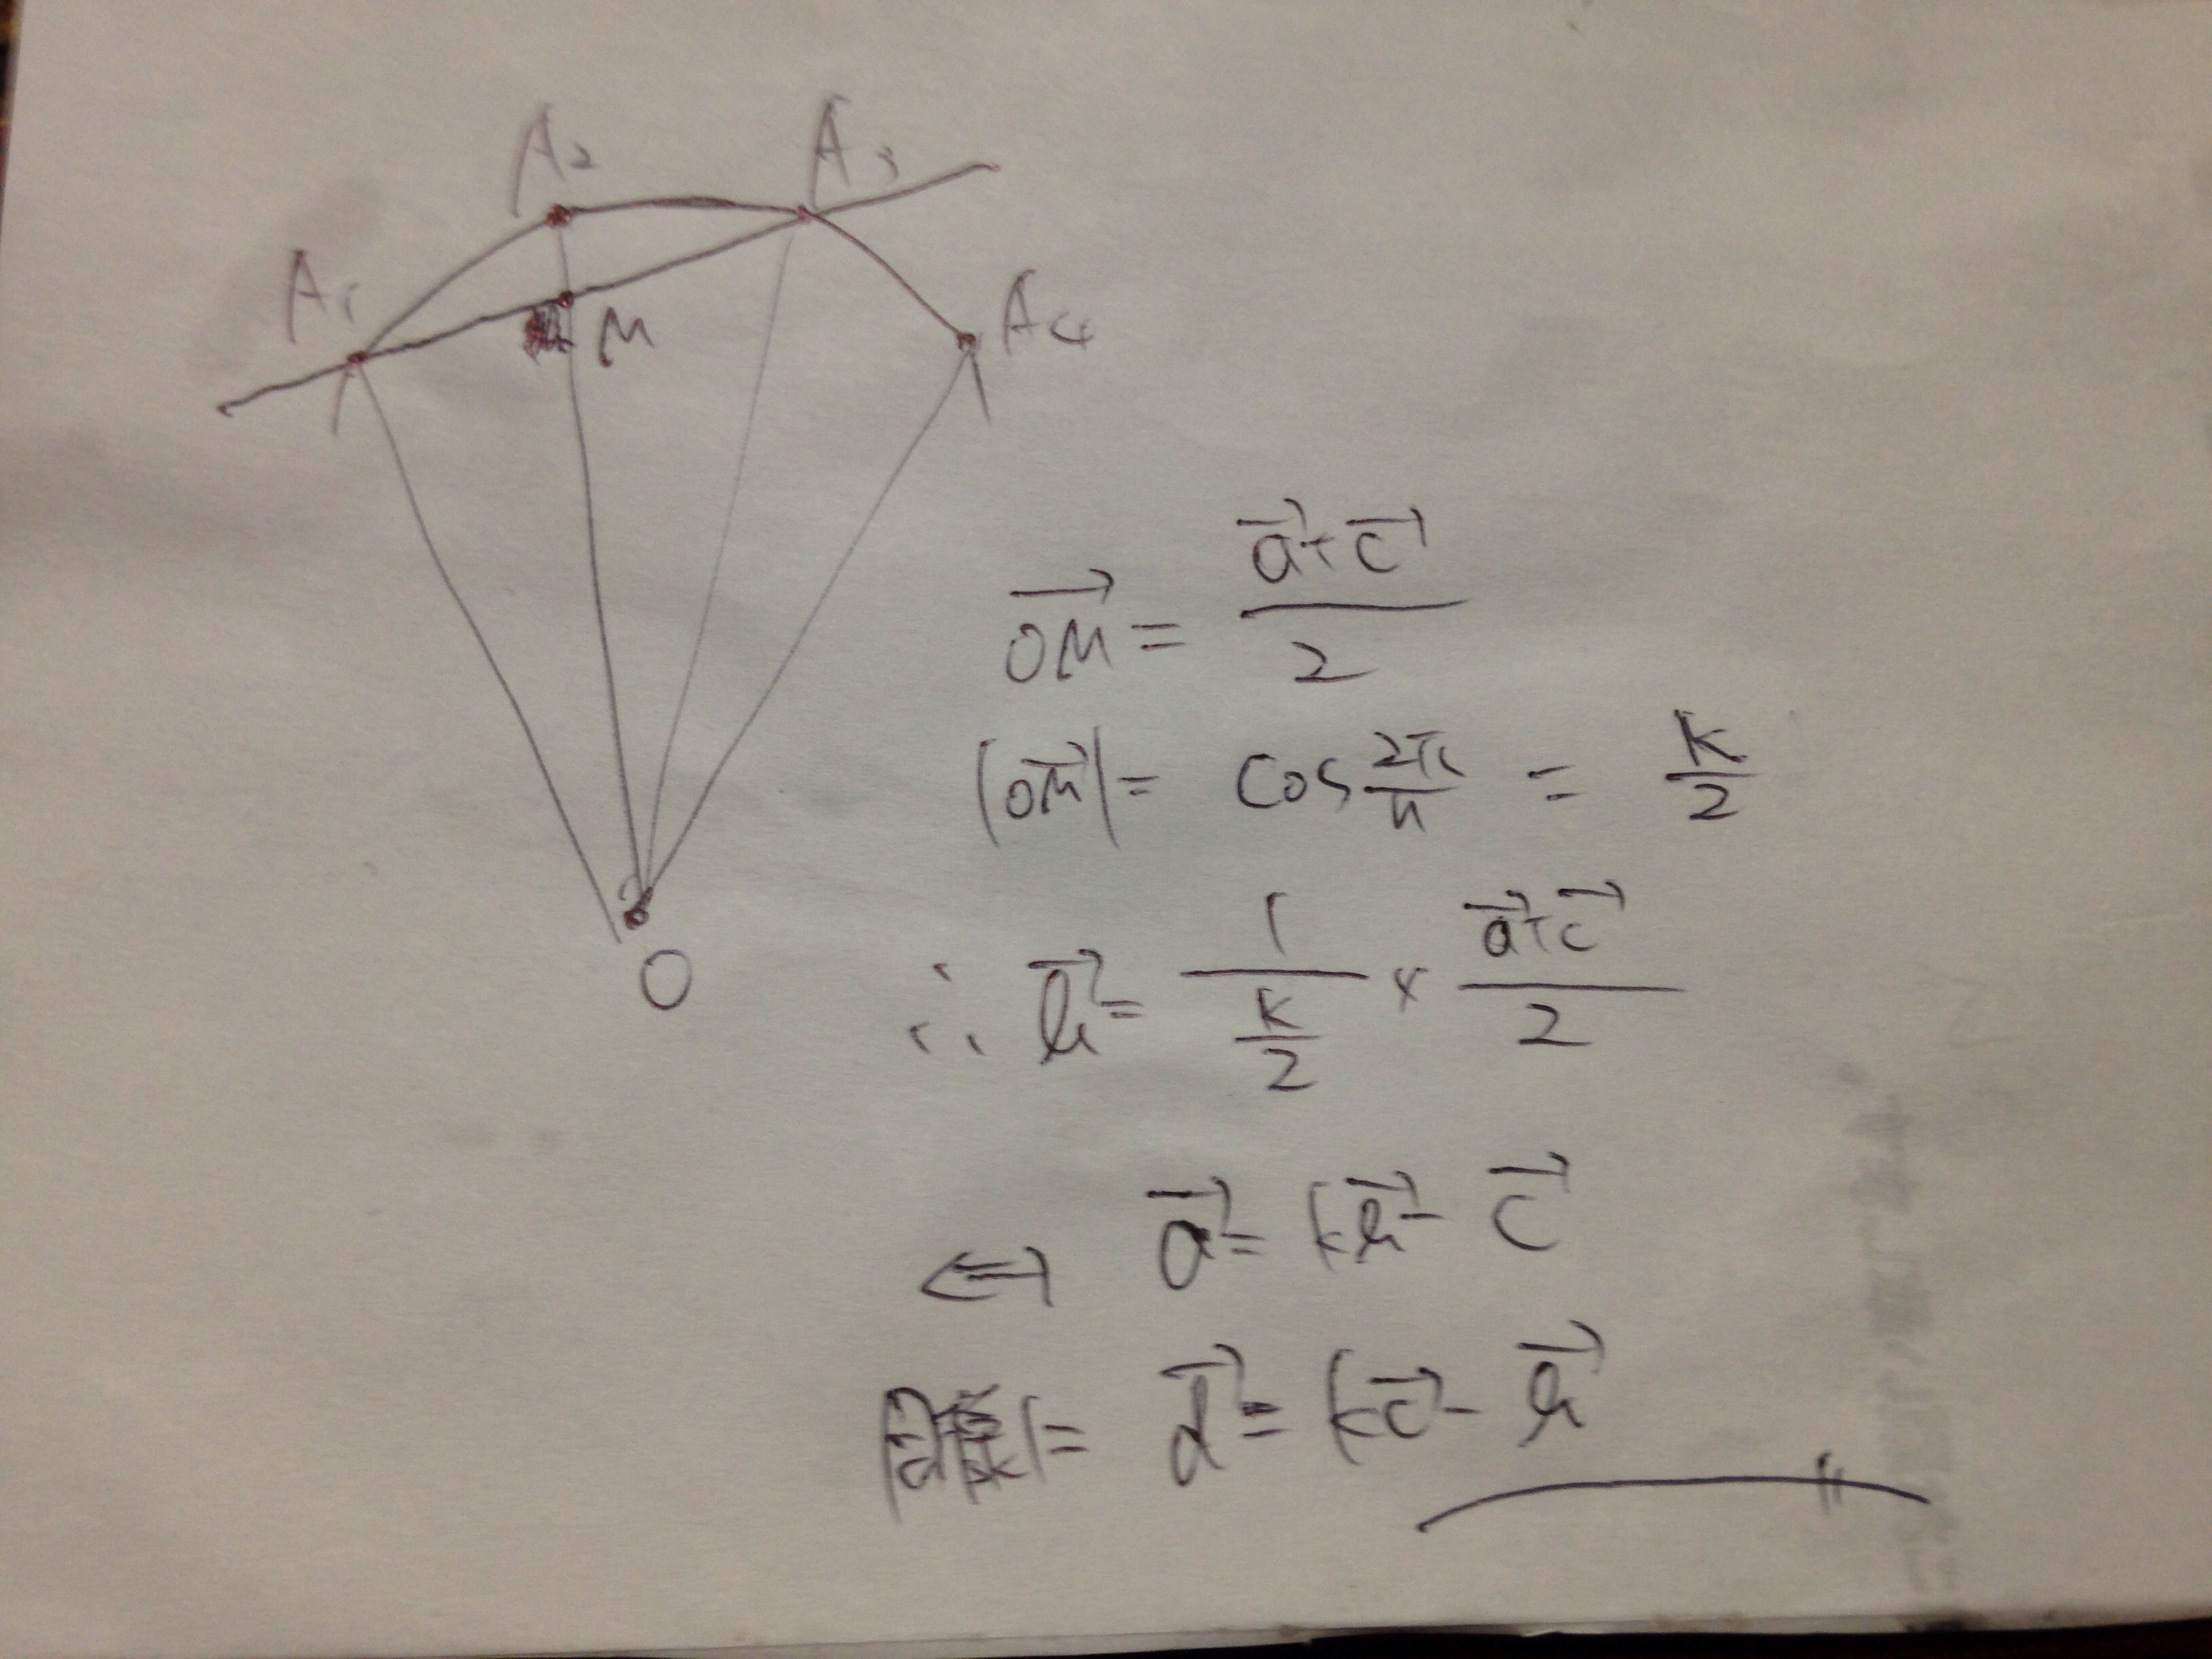 A₁
A₂
A₃
A₄
M
O
\overrightarrow{OM} = \frac{\vec{a}+\vec{c}}{2}
|\overrightarrow{OM}| = cos\frac{2π}{n} = \frac{k}{2}
∴ \vec{b} = \frac{1}{\frac{k}{2}} × \frac{\vec{a}+\vec{c}}{2}
⇔ \vec{a} = k\vec{b} - \vec{c}
\vec{d} = k\vec{c} - \vec{b}